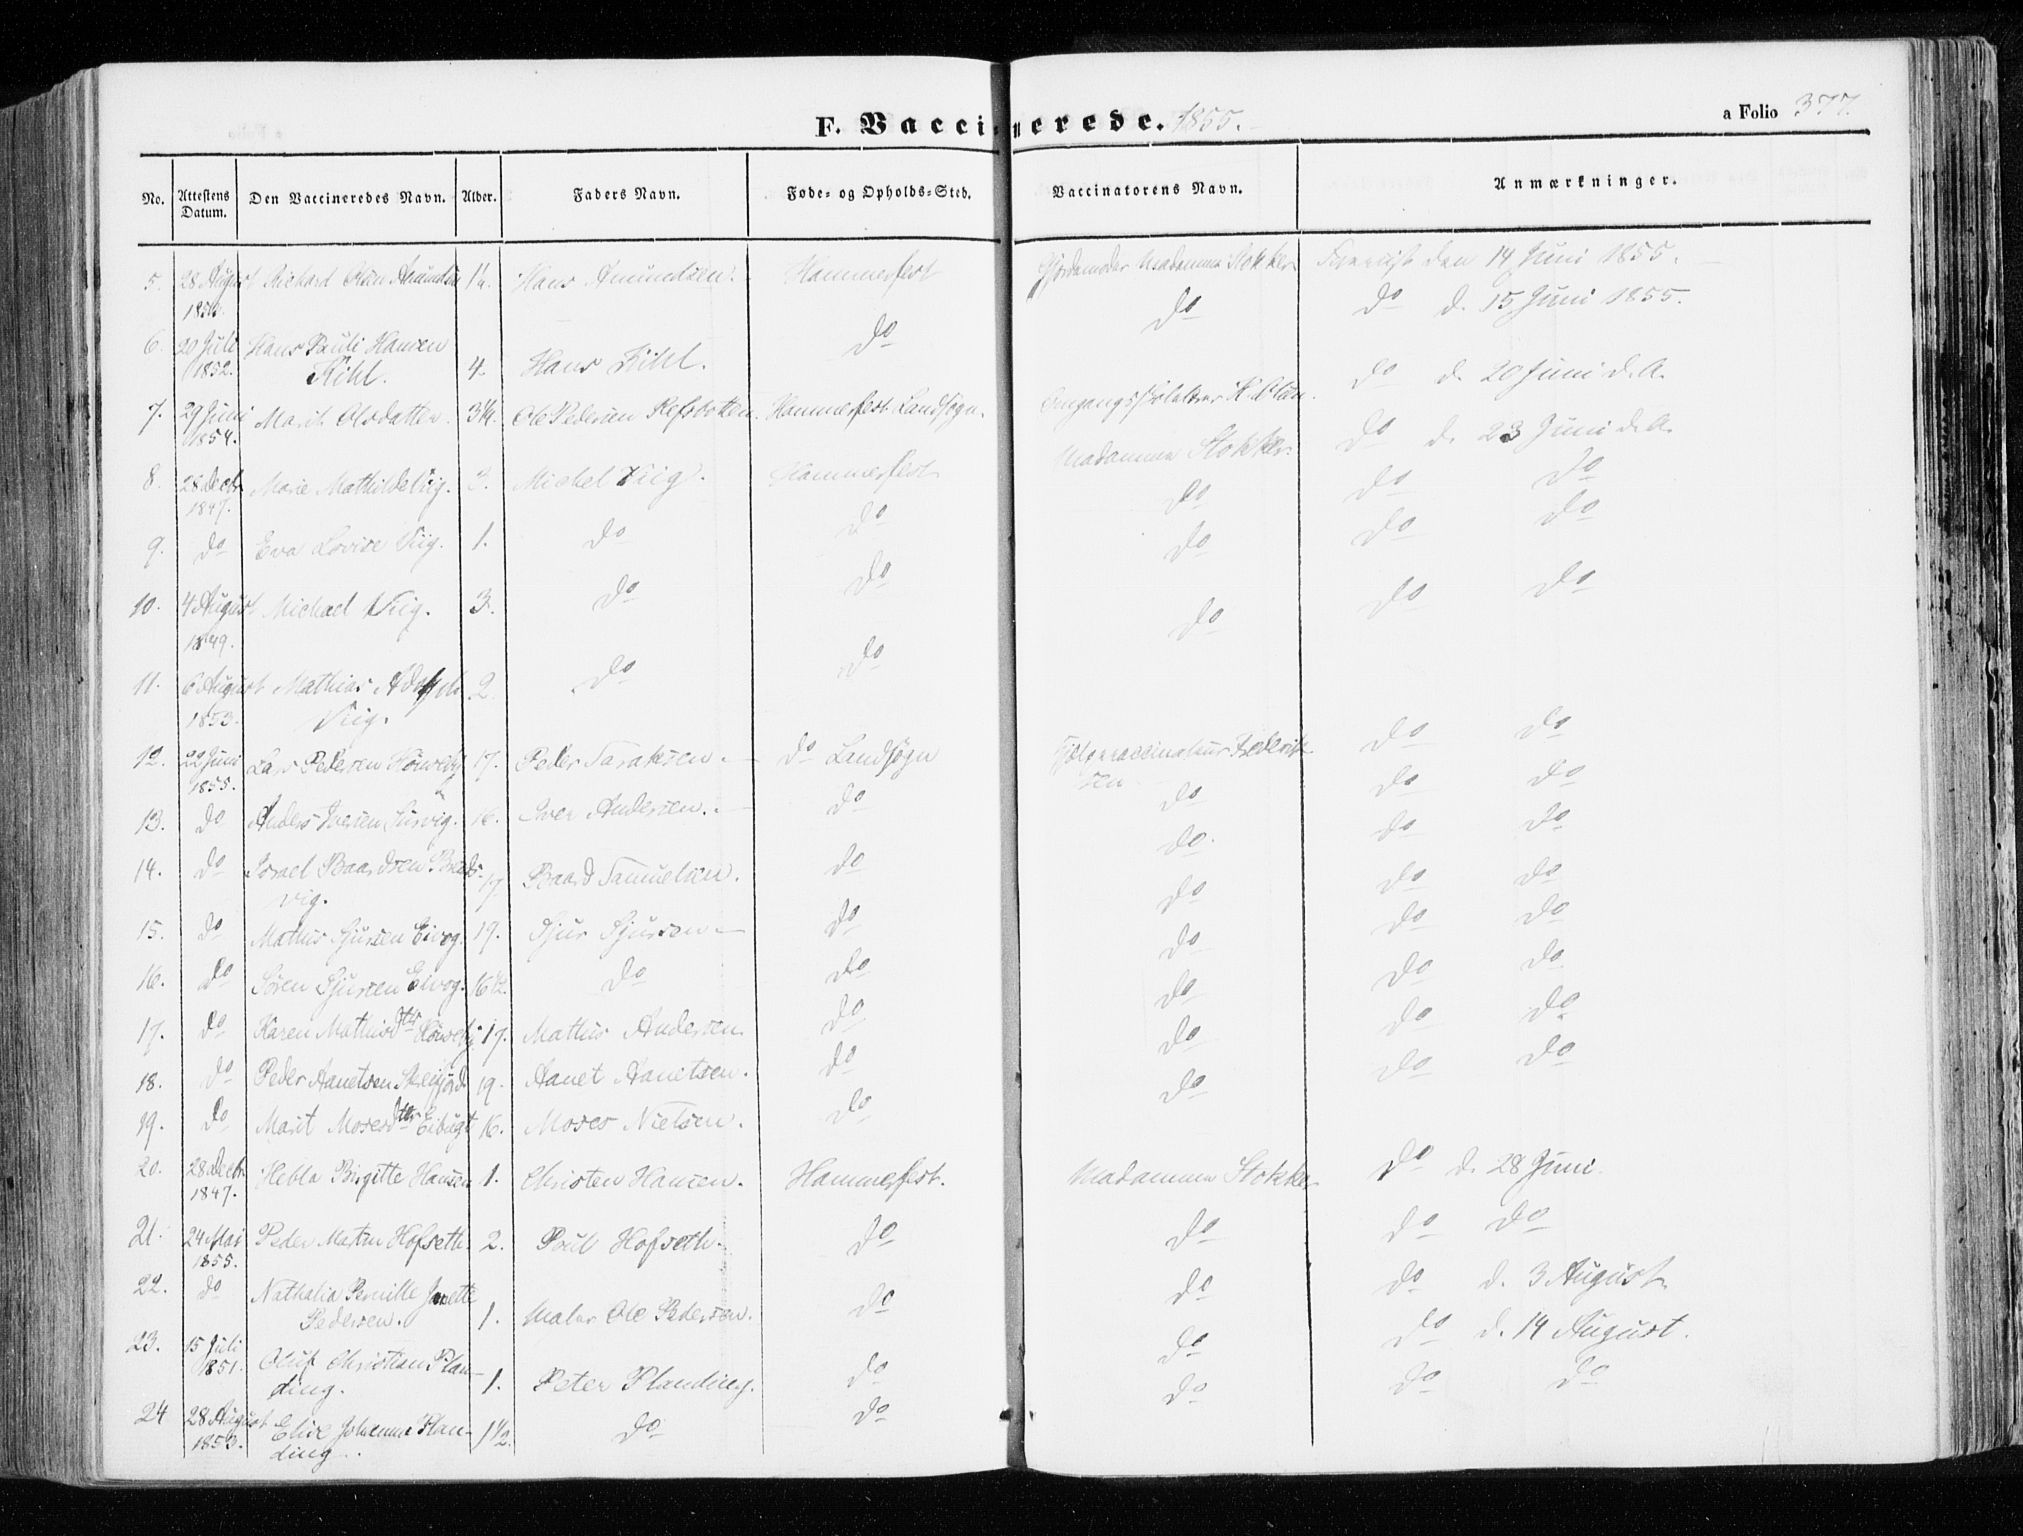 F. Vaccinerede. 1855.
a Folio 377.
No. Attestens Datum. Den Vaccineredes Navn. Alder. Faders Navn. Føde- og Opholds-Sted. Vaccinatorens Navn. Anmærkninger.
5. 28 August Richard Olan Amundsen 1¼. Hans Amundsen. Hammerfest Madamme Stokker den 14 Juni 1855.
do do d. 15 Juni 1855.
6. 20 Juli Hans Pauli Hansen do
1852. Kihl. 4. Hans Kihl. do d. 20 Juni d.A.
7. 29 Juni Marit Olsdatter 3¼. Ole Pedersen Refsbotten Hammerfest Landsogn. Omgangsskolelærer
1854. Madamme Stokker do d. 23 Juni d.A.
8. 28 Decbr Marie Mathilde Viig. 3. Michel Viig. Hammerfest do do do
1847.
9. do Eva Lovise Viig. 1. do do do do do
10. 4 August Michael Viig. 3. do do do do do
1849.
11. 6 August Mathias Adolph 2. do do
1853. Viig.
12. 22 Juni Lars Pedersen 17. Peder Isaksen. do Landsogn Hjelpevaccinatur Frederik- do do
1855. sen
13. do Anders Iversen 16. Iver Andersen. do do do do
14. do Israel Baardsen 17. Baard Samuelsen. do do. do do
vig.
15. do Mathis Sjursen Eivog. 19. Sjur Sjursen do do do do
16. do Søren Sjursen Eivog. 16½. do do do do do
17. do Karen Mathisdtr 19. Mathis Andersen do do do do
18. do Peder Aanetsen 19. Aanet Aanetsen. do do do do
19. do Marit Mosesdtr Eibugt 16. Moses Nielsen. do do do do
20. 28 Decbr Hebla Birgitte Hansen 1. Christen Hansen. Hammerfest. Madamme Stokker do d. 28 Juni.
1847.
21. 24 Mai Peder Martin Hofseth. 2. Poul Hofseth. do do do do
1855.
22. do Nathalia Pernille Janette
Pedersen. 1. Maler Ole Pedersen. do do do d. 3 August
23. 15 Juli Oluf Christian Plan-
1851. ding. 1. Peter Planding. do do do d. 14 August.
24 28 August Elise Johanna Plan- 1½. do do do do do
1853. ding.